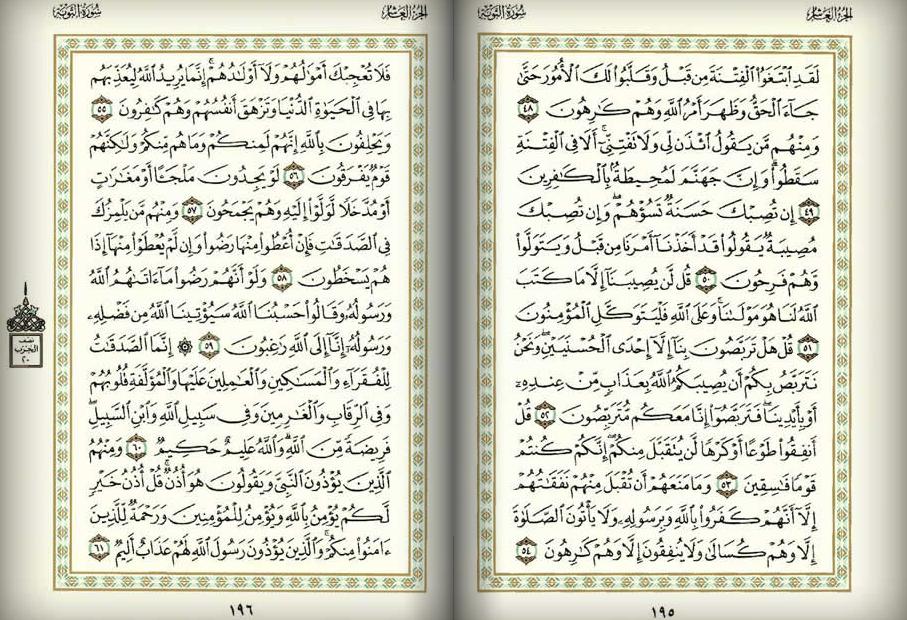 الجزء العاشر
سورة التوبة
لَقَدِ ٱبْتَغَوُا۟ ٱلْفِتْنَةَ مِن قَبْلُ وَقَلَّبُوا۟ لَكَ ٱلْأُمُورَ حَتَّىٰ
جَآءَ ٱلْحَقُّ وَظَهَرَ أَمْرُ ٱللَّهِ وَهُمْ كَـٰرِهُونَ ٤٨
وَمِنْهُم مَّن يَقُولُ ٱئْذَن لِّى وَلَا تَفْتِنِّىٓ ۚ أَلَا فِى ٱلْفِتْنَةِ
سَقَطُوا۟ ۗ وَإِنَّ جَهَنَّمَ لَمُحِيطَةٌۢ بِٱلْكَـٰفِرِينَ
٤٩ إِن تُصِبْكَ حَسَنَةٌ تَسُؤْهُمْ ۖ وَإِن تُصِبْكَ
مُصِيبَةٌ يَقُولُوا۟ قَدْ أَخَذْنَآ أَمْرَنَا مِن قَبْلُ وَيَتَوَلَّوا۟
وَّهُمْ فَرِحُونَ ٥٠ قُل لَّن يُصِيبَنَآ إِلَّا مَا كَتَبَ
ٱللَّهُ لَنَا هُوَ مَوْلَىٰنَا ۚ وَعَلَى ٱللَّهِ فَلْيَتَوَكَّلِ ٱلْمُؤْمِنُونَ
٥١ قُلْ هَلْ تَرَبَّصُونَ بِنَآ إِلَّآ إِحْدَى ٱلْحُسْنَيَيْنِ ۖ وَنَحْنُ
نَتَرَبَّصُ بِكُمْ أَن يُصِيبَكُمُ ٱللَّهُ بِعَذَابٍ مِّنْ عِندِهِۦٓ
أَوْ بِأَيْدِينَا ۖ فَتَرَبَّصُوٓا۟ إِنَّا مَعَكُم مُّتَرَبِّصُونَ ٥٢ قُلْ
أَنفِقُوا۟ طَوْعًا أَوْ كَرْهًا لَّن يُتَقَبَّلَ مِنكُمْ ۖ إِنَّكُمْ كُنتُمْ
قَوْمًا فَـٰسِقِينَ ٥٣ وَمَا مَنَعَهُمْ أَن تُقْبَلَ مِنْهُمْ نَفَقَـٰتُهُمْ
إِلَّآ أَنَّهُمْ كَفَرُوا۟ بِٱللَّهِ وَبِرَسُولِهِۦ وَلَا يَأْتُونَ ٱلصَّلَوٰةَ
إِلَّا وَهُمْ كُسَالَىٰ وَلَا يُنفِقُونَ إِلَّا وَهُمْ كَـٰرِهُونَ ٥٤
١٩٥
الجزء العاشر
سورة التوبة
فَلَا تُعْجِبْكَ أَمْوَٰلُهُمْ وَلَآ أَوْلَـٰدُهُمْ ۚ إِنَّمَا يُرِيدُ ٱللَّهُ لِيُعَذِّبَهُم
بِهَا فِى ٱلْحَيَوٰةِ ٱلدُّنْيَا وَتَزْهَقَ أَنفُسُهُمْ وَهُمْ كَـٰفِرُونَ ٥٥
وَيَحْلِفُونَ بِٱللَّهِ إِنَّهُمْ لَمِنكُمْ وَمَا هُم مِّنكُمْ وَلَـٰكِنَّهُمْ
قَوْمٌ يَفْرَقُونَ ٥٦ لَوْ يَجِدُونَ مَلْجَـًٔا أَوْ مَغَـٰرَٰتٍ
أَوْ مُدَّخَلًا لَّوَلَّوْا۟ إِلَيْهِ وَهُمْ يَجْمَحُونَ ٥٧ وَمِنْهُم مَّن يَلْمِزُكَ
فِى ٱلصَّدَقَـٰتِ فَإِنْ أُعْطُوا۟ مِنْهَا رَضُوا۟ وَإِن لَّمْ يُعْطَوْا۟ مِنْهَآ إِذَا
هُمْ يَسْخَطُونَ ٥٨ وَلَوْ أَنَّهُمْ رَضُوا۟ مَآ ءَاتَىٰهُمُ ٱللَّهُ
وَرَسُولُهُۥ وَقَالُوا۟ حَسْبُنَا ٱللَّهُ سَيُؤْتِينَا ٱللَّهُ مِن فَضْلِهِۦ
وَرَسُولُهُۥٓ إِنَّآ إِلَى ٱللَّهِ رَٰغِبُونَ ٥٩ ۞ إِنَّمَا ٱلصَّدَقَـٰتُ
لِلْفُقَرَآءِ وَٱلْمَسَـٰكِينِ وَٱلْعَـٰمِلِينَ عَلَيْهَا وَٱلْمُؤَلَّفَةِ قُلُوبُهُمْ
وَفِى ٱلرِّقَابِ وَٱلْغَـٰرِمِينَ وَفِى سَبِيلِ ٱللَّهِ وَٱبْنِ ٱلسَّبِيلِ ۖ
فَرِيضَةً مِّنَ ٱللَّهِ ۗ وَٱللَّهُ عَلِيمٌ حَكِيمٌ ٦٠ وَمِنْهُمُ
ٱلَّذِينَ يُؤْذُونَ ٱلنَّبِىَّ وَيَقُولُونَ هُوَ أُذُنٌ ۚ قُلْ أُذُنُ خَيْرٍ
لَّكُمْ يُؤْمِنُ بِٱللَّهِ وَيُؤْمِنُ لِلْمُؤْمِنِينَ وَرَحْمَةٌ لِّلَّذِينَ
ءَامَنُوا۟ مِنكُمْ ۚ وَٱلَّذِينَ يُؤْذُونَ رَسُولَ ٱللَّهِ لَهُمْ عَذَابٌ أَلِيمٌ ٦١
نصف
الحزب
٢٠
١٩٦